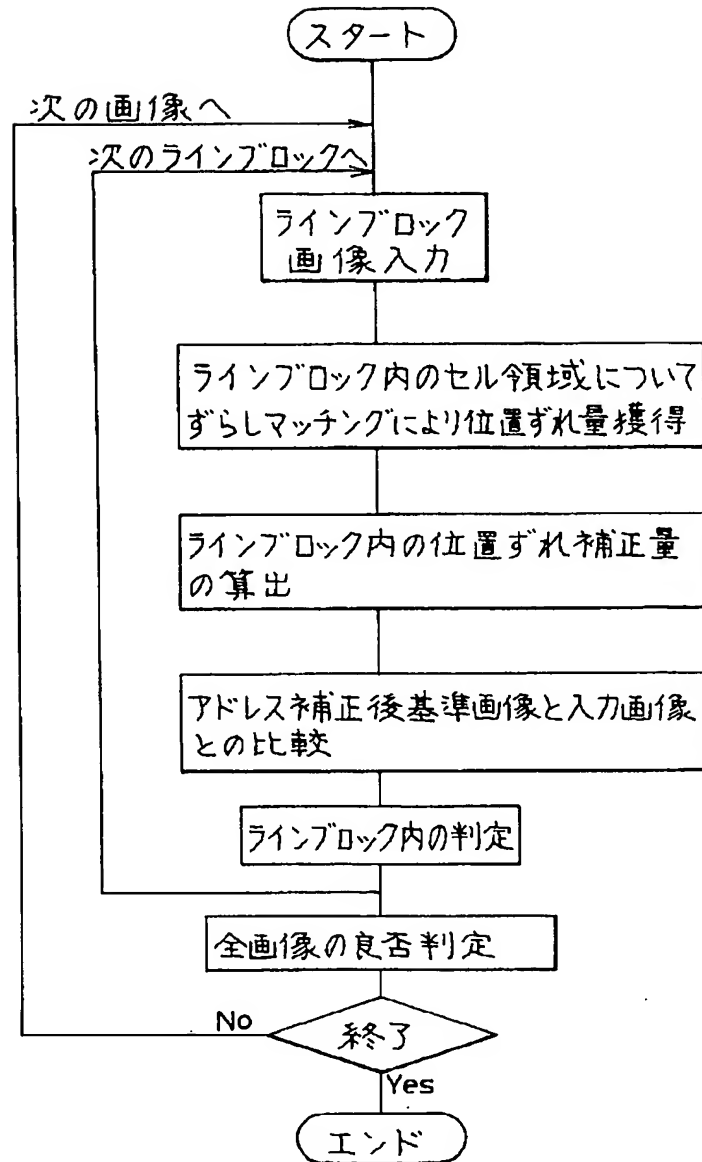 スタート
次の画像へ
次のラインブロックへ
ラインブロック
画像入力
ラインブロック内のセル領域について
ずらしマッチングにより位置ずれ量獲得
ラインブロック内の位置ずれ補正量
の算出
アドレス補正後基準画像と入力画像
との比較
ラインブロック内の判定
全画像の良否判定
No
終了
Yes
エンド